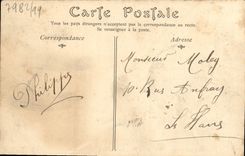 7982/99
Carte Postale
Tous les pays étrangers n'acceptent pas la correspondance au recto.
Se renseigner à la poste.
Correspondance
Adresse
Monsieur Maloy
10 Rue
Philippe
Le Mans